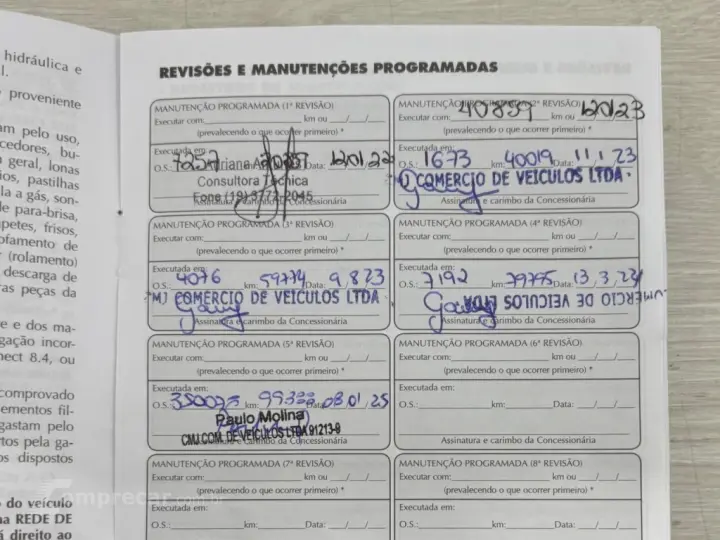 hidráulica e
l.
proveniente
am pelo uso,
cedores, bu-
geral, lonas
ios, pastilhas
la a gás, son-
de para-brisa,
petes, frisos,
ofamento de
(rolamento)
descarga de
ras peças da
e e dos ma-
gação incor-
nect 8.4, ou
comprovado
ementos fil-
gastam pelo
rtos pela ga-
os dispostos
do veículo
na REDE DE
á direito ao
REVISÕES E MANUTENÇÕES PROGRAMADAS
MANUTENÇÃO PROGRAMADA (1ª REVISÃO)
Executar com: km ou / /
(prevalecendo o que ocorrer primeiro) *
Executada em:
O.S.: 7257 Data: 12/01/22
Adriana
Consultora Técnica
Fone (19) 3772-2045
Assinatura e carimbo da Concessionária
MANUTENÇÃO PROGRAMADA (2ª REVISÃO)
Executar com: 40839 km ou 12/01/23
(prevalecendo o que ocorrer primeiro) *
Executada em:
O.S.: 1673 km: 40019 Data: 11/1/23
COMERCIO DE VEÍCULOS LTDA
Assinatura e carimbo da Concessionária
MANUTENÇÃO PROGRAMADA (3ª REVISÃO)
Executar com: km ou / /
(prevalecendo o que ocorrer primeiro) *
Executada em:
O.S.: 4076 km: 59774 Data: 9/8/23
MJ COMERCIO DE VEÍCULOS LTDA
Assinatura e carimbo da Concessionária
MANUTENÇÃO PROGRAMADA (4ª REVISÃO)
Executar com: km ou / /
(prevalecendo o que ocorrer primeiro) *
Executada em:
O.S.: 7192 km: 79795 Data: 13/3/24
OMERCIO DE VEICULOS LTDA
Assinatura e carimbo da Concessionária
MANUTENÇÃO PROGRAMADA (5ª REVISÃO)
Executar com: km ou / /
(prevalecendo o que ocorrer primeiro) *
Executada em:
O.S.: km: Data: 08/01/25
Paulo Molina
CMJ COM. DE VEÍCULOS LTDA 91213-9
Assinatura e carimbo da Concessionária
MANUTENÇÃO PROGRAMADA (6ª REVISÃO)
Executar com: km ou / /
(prevalecendo o que ocorrer primeiro) *
Executada em:
O.S.: km: Data: / /
Assinatura e carimbo da Concessionária
MANUTENÇÃO PROGRAMADA (7ª REVISÃO)
Executar com: km ou / /
(prevalecendo o que ocorrer primeiro) *
Executada em:
O.S.: km: Data: / /
MANUTENÇÃO PROGRAMADA (8ª REVISÃO)
Executar com: km ou / /
(prevalecendo o que ocorrer primeiro) *
Executada em:
O.S.: km: Data: / /
comprecar.com.br